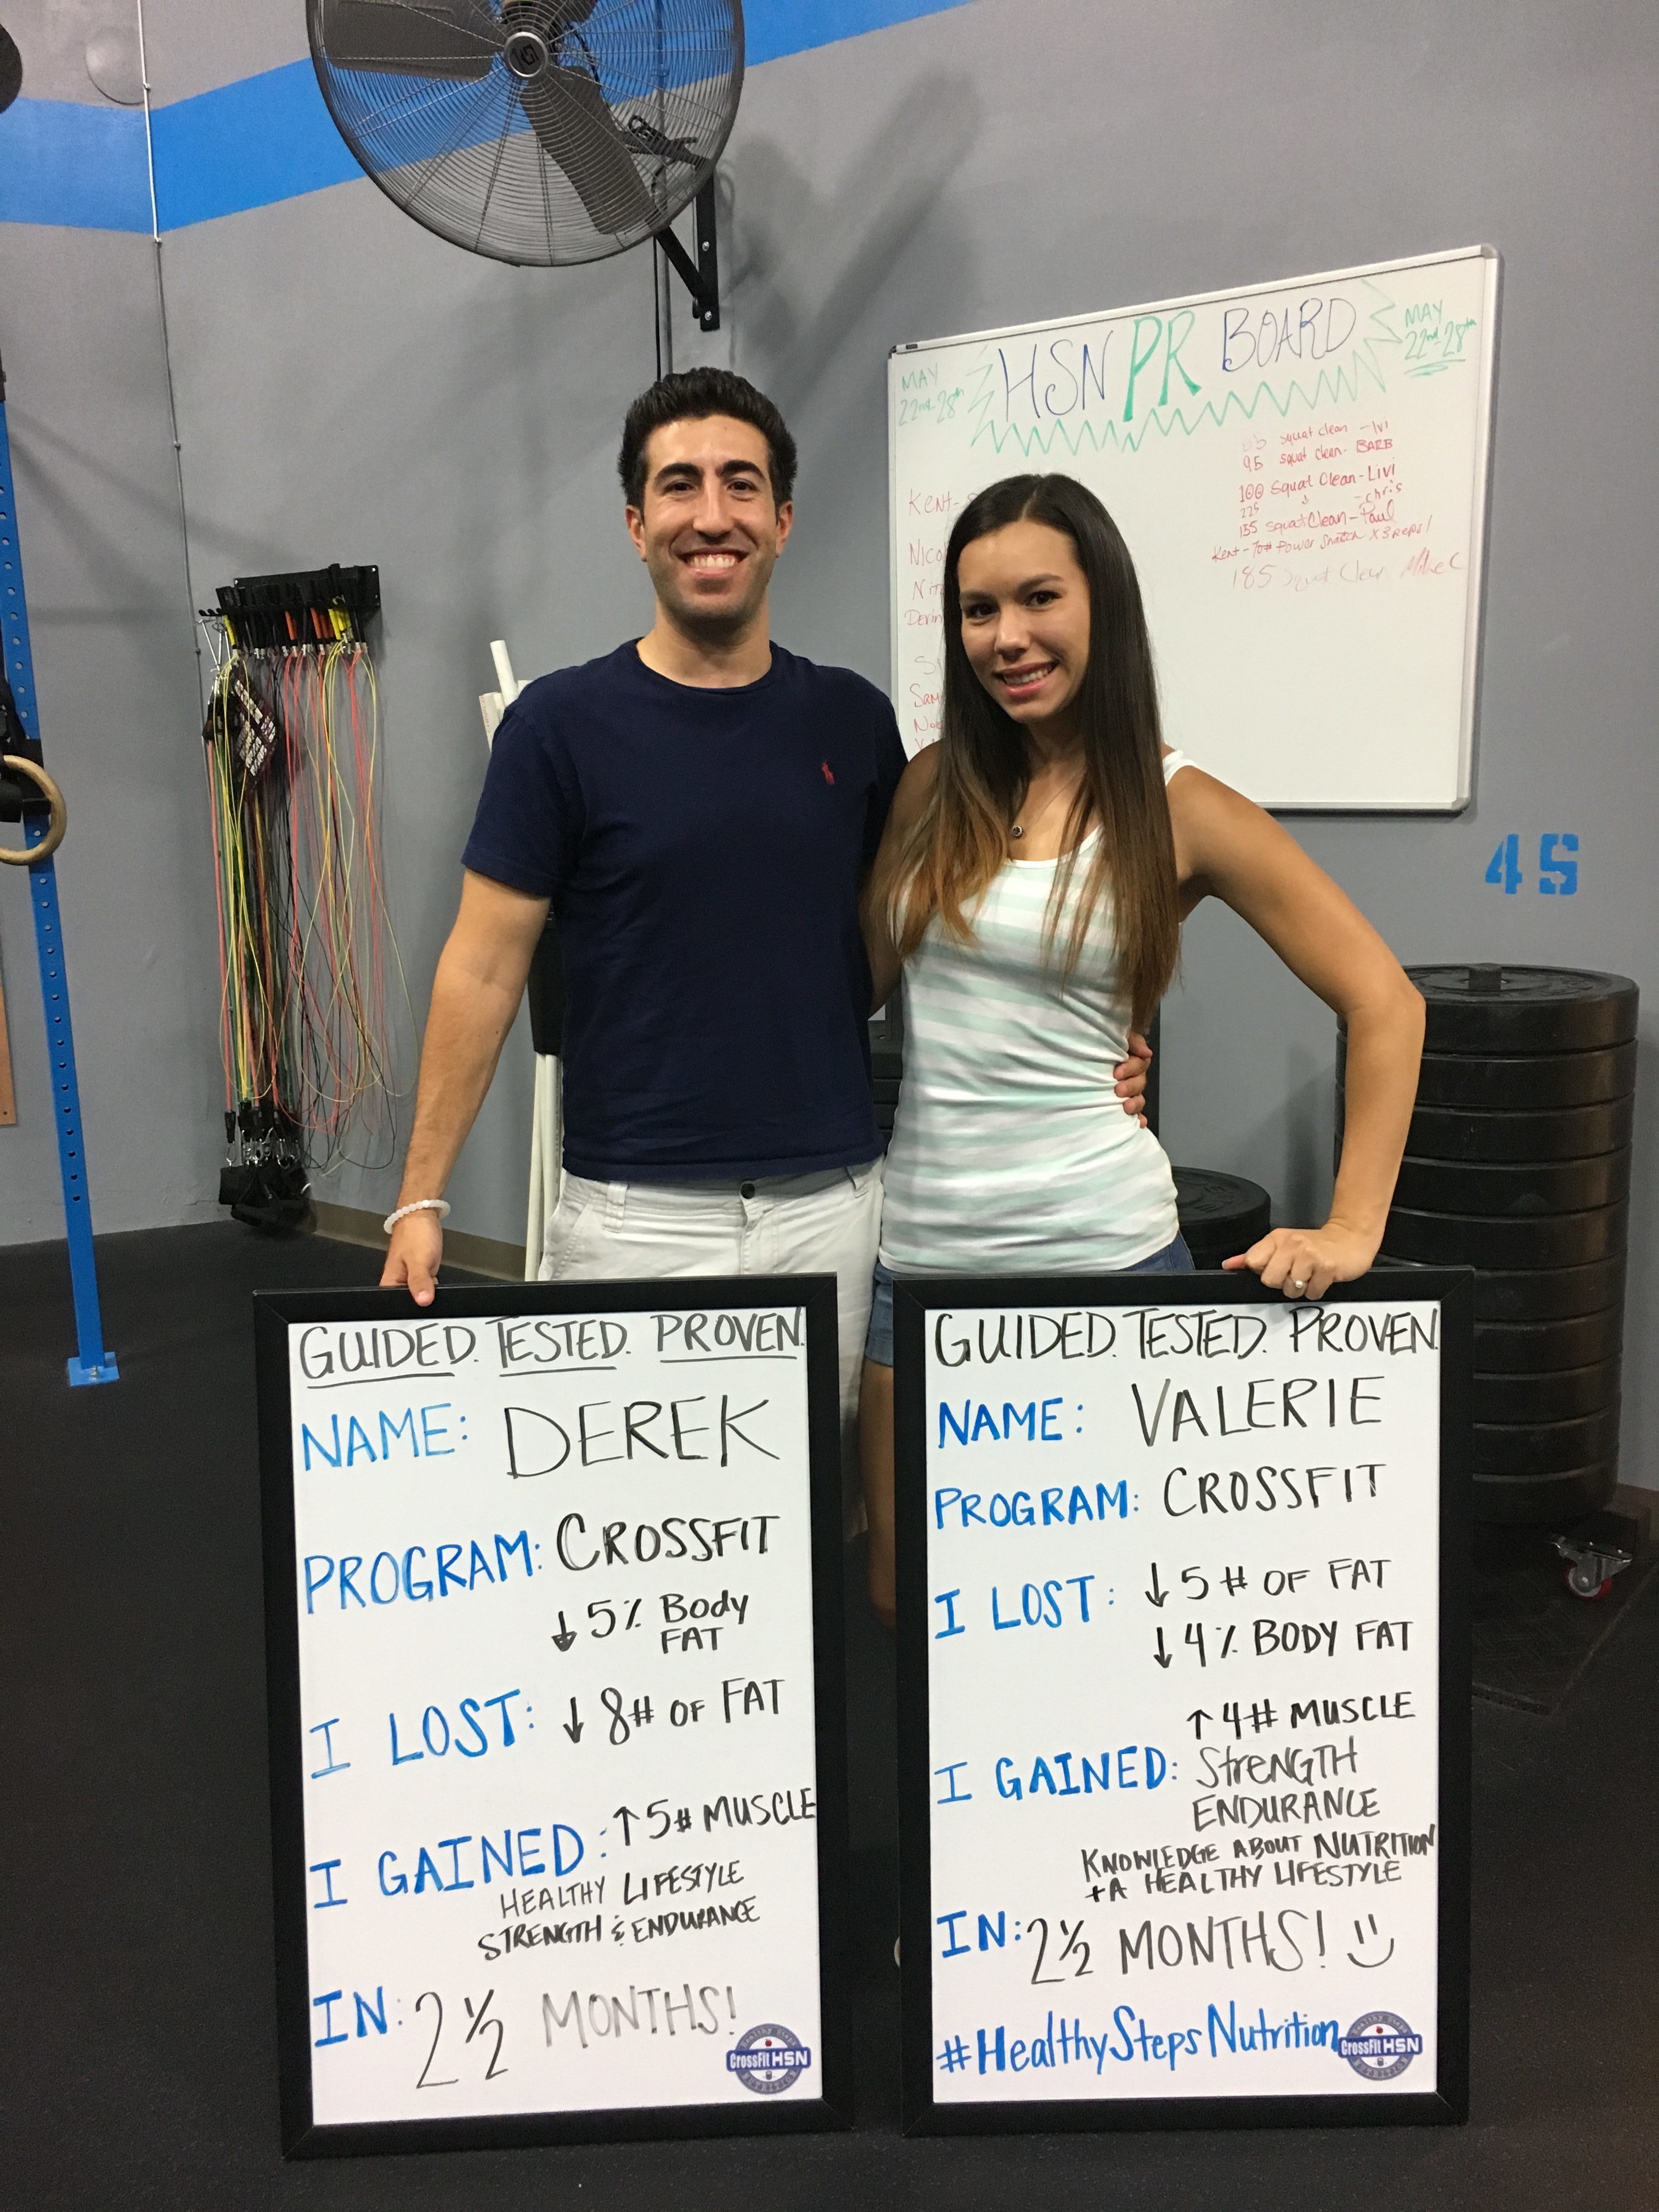 HSN PR BOARD
MAY
22nd-28th
MAY
22nd-28th
squat clean - Ivi
95 squat clean - BARB
100 Squat Clean - Livi
225 - Chris
155 squat Clean - Paul
Kent - 70# Power Snatch x 3 reps!
185 Squat Clean Mike C
Kent -
Nico
Devin
Sam
45
GUIDED. TESTED. PROVEN.
NAME: DEREK
PROGRAM: CROSSFIT
↓ 5% Body
FAT
I LOST: ↓ 8# OF FAT
I GAINED: ↑ 5# MUSCLE
HEALTHY LIFESTYLE
STRENGTH & ENDURANCE
IN: 2 1/2 MONTHS!
Healthy Steps
CrossFit HSN
NUTRITION
GUIDED. TESTED. PROVEN.
NAME: VALERIE
PROGRAM: CROSSFIT
I LOST: ↓ 5 # OF FAT
↓ 4 % BODY FAT
↑ 4# MUSCLE
I GAINED: STRENGTH
ENDURANCE
KNOWLEDGE ABOUT NUTRITION
+ A HEALTHY LIFESTYLE
IN: 2 1/2 MONTHS!
#HealthyStepsNutrition
Healthy Steps
CrossFit HSN
NUTRITION